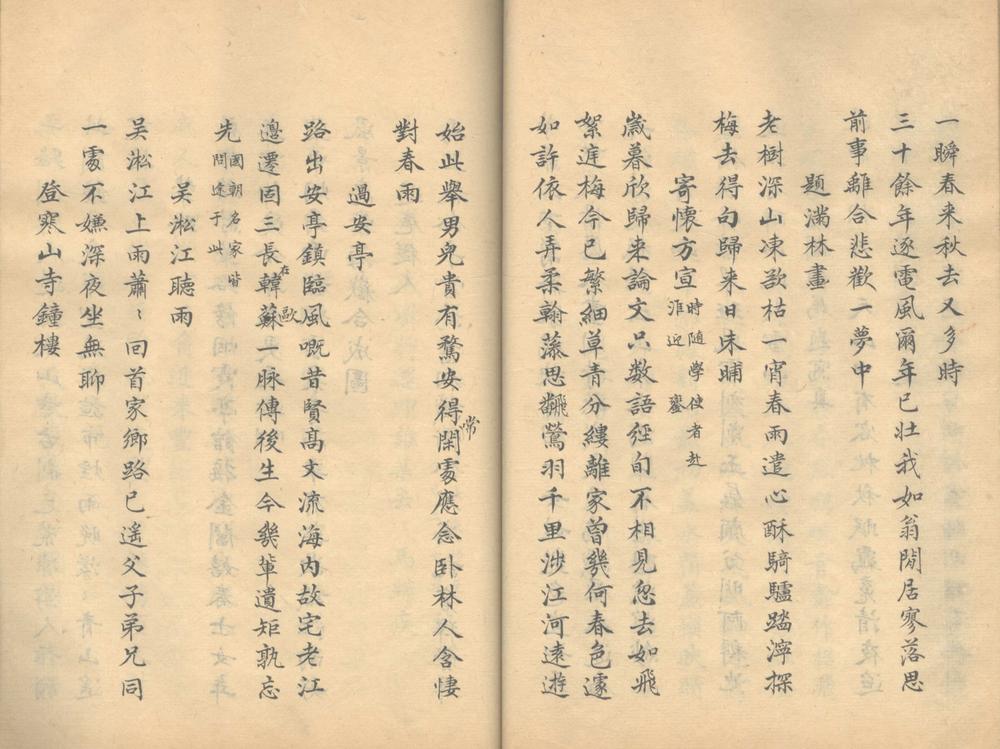 一瞬春来秋去又多時
三十餘年逐電風爾年已壯我如翁閒居寥落思
前事離合悲歡一夢中
題滿林畫
老樹深山凍欲枯一宵春雨遣心酥騎驢踏濘探
梅去得句歸来日未晡
寄懷方宣時随學使者赴淮迎鑾
歲暮欣歸来論文只数語經旬不相見忽去如飛
絮進梅今已繁細草青分縷離家曾幾何春色遽
如許依人弄柔翰藻思翻鶯羽千里涉江河遠遊
始此舉男兒貴有騖安得常閑處應念卧林人含悽
對春雨
過安亭
路出安亭鎮臨風嘅昔賢高文流海内故宅老江
邊遷固三長在韓蘇歐一脉傳後生今幾輩遺矩孰忘
先國朝名家皆問途于此
吴淞江聴雨
吴淞江上雨蕭〻回首家鄉路已遥父子弟兄同
一處不嫌深夜坐無聊
登寒山寺鐘樓